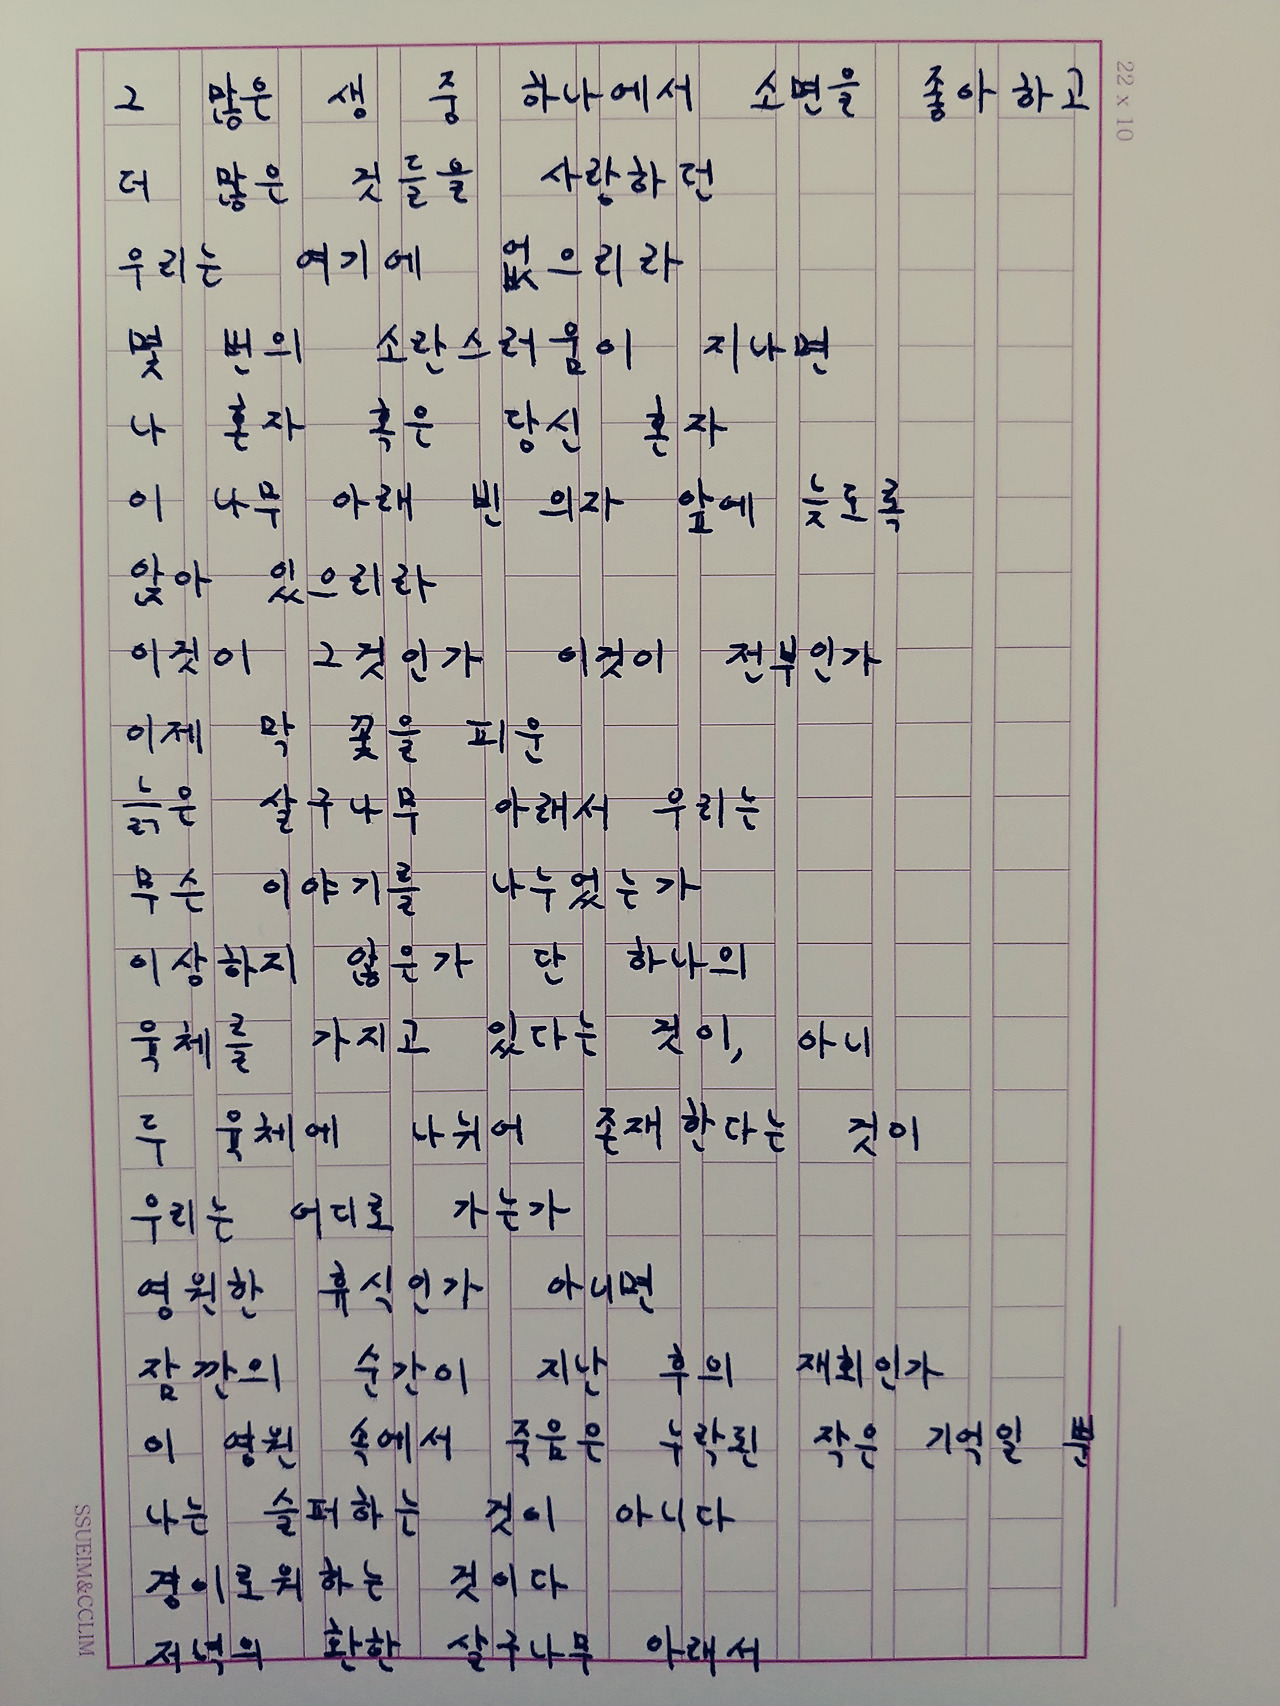 그 많은 생 중 하나에서 소면을 좋아하고
더 많은 것들을 사랑하던
우리는 여기에 없으리라
몇 번의 소란스러움이 지나면
나 혼자 혹은 당신 혼자
이 나무 아래 빈 의자 앞에 늦도록
앉아 있으리라
이것이 그것인가 이것이 전부인가
이제 막 꽃을 피운
늙은 살구나무 아래서 우리는
무슨 이야기를 나누었는가
이상하지 않은가 단 하나의
육체를 가지고 있다는 것이, 아니
두 육체에 나뉘어 존재한다는 것이
우리는 어디로 가는가
영원한 휴식인가 아니면
잠깐의 순간이 지난 후의 재회인가
이 영원 속에서 죽음은 누락된 작은 기억일 뿐
나는 슬퍼하는 것이 아니다
경이로워하는 것이다
저녁의 환한 살구나무 아래서
22 x 10
SSUEIM&CCLIM